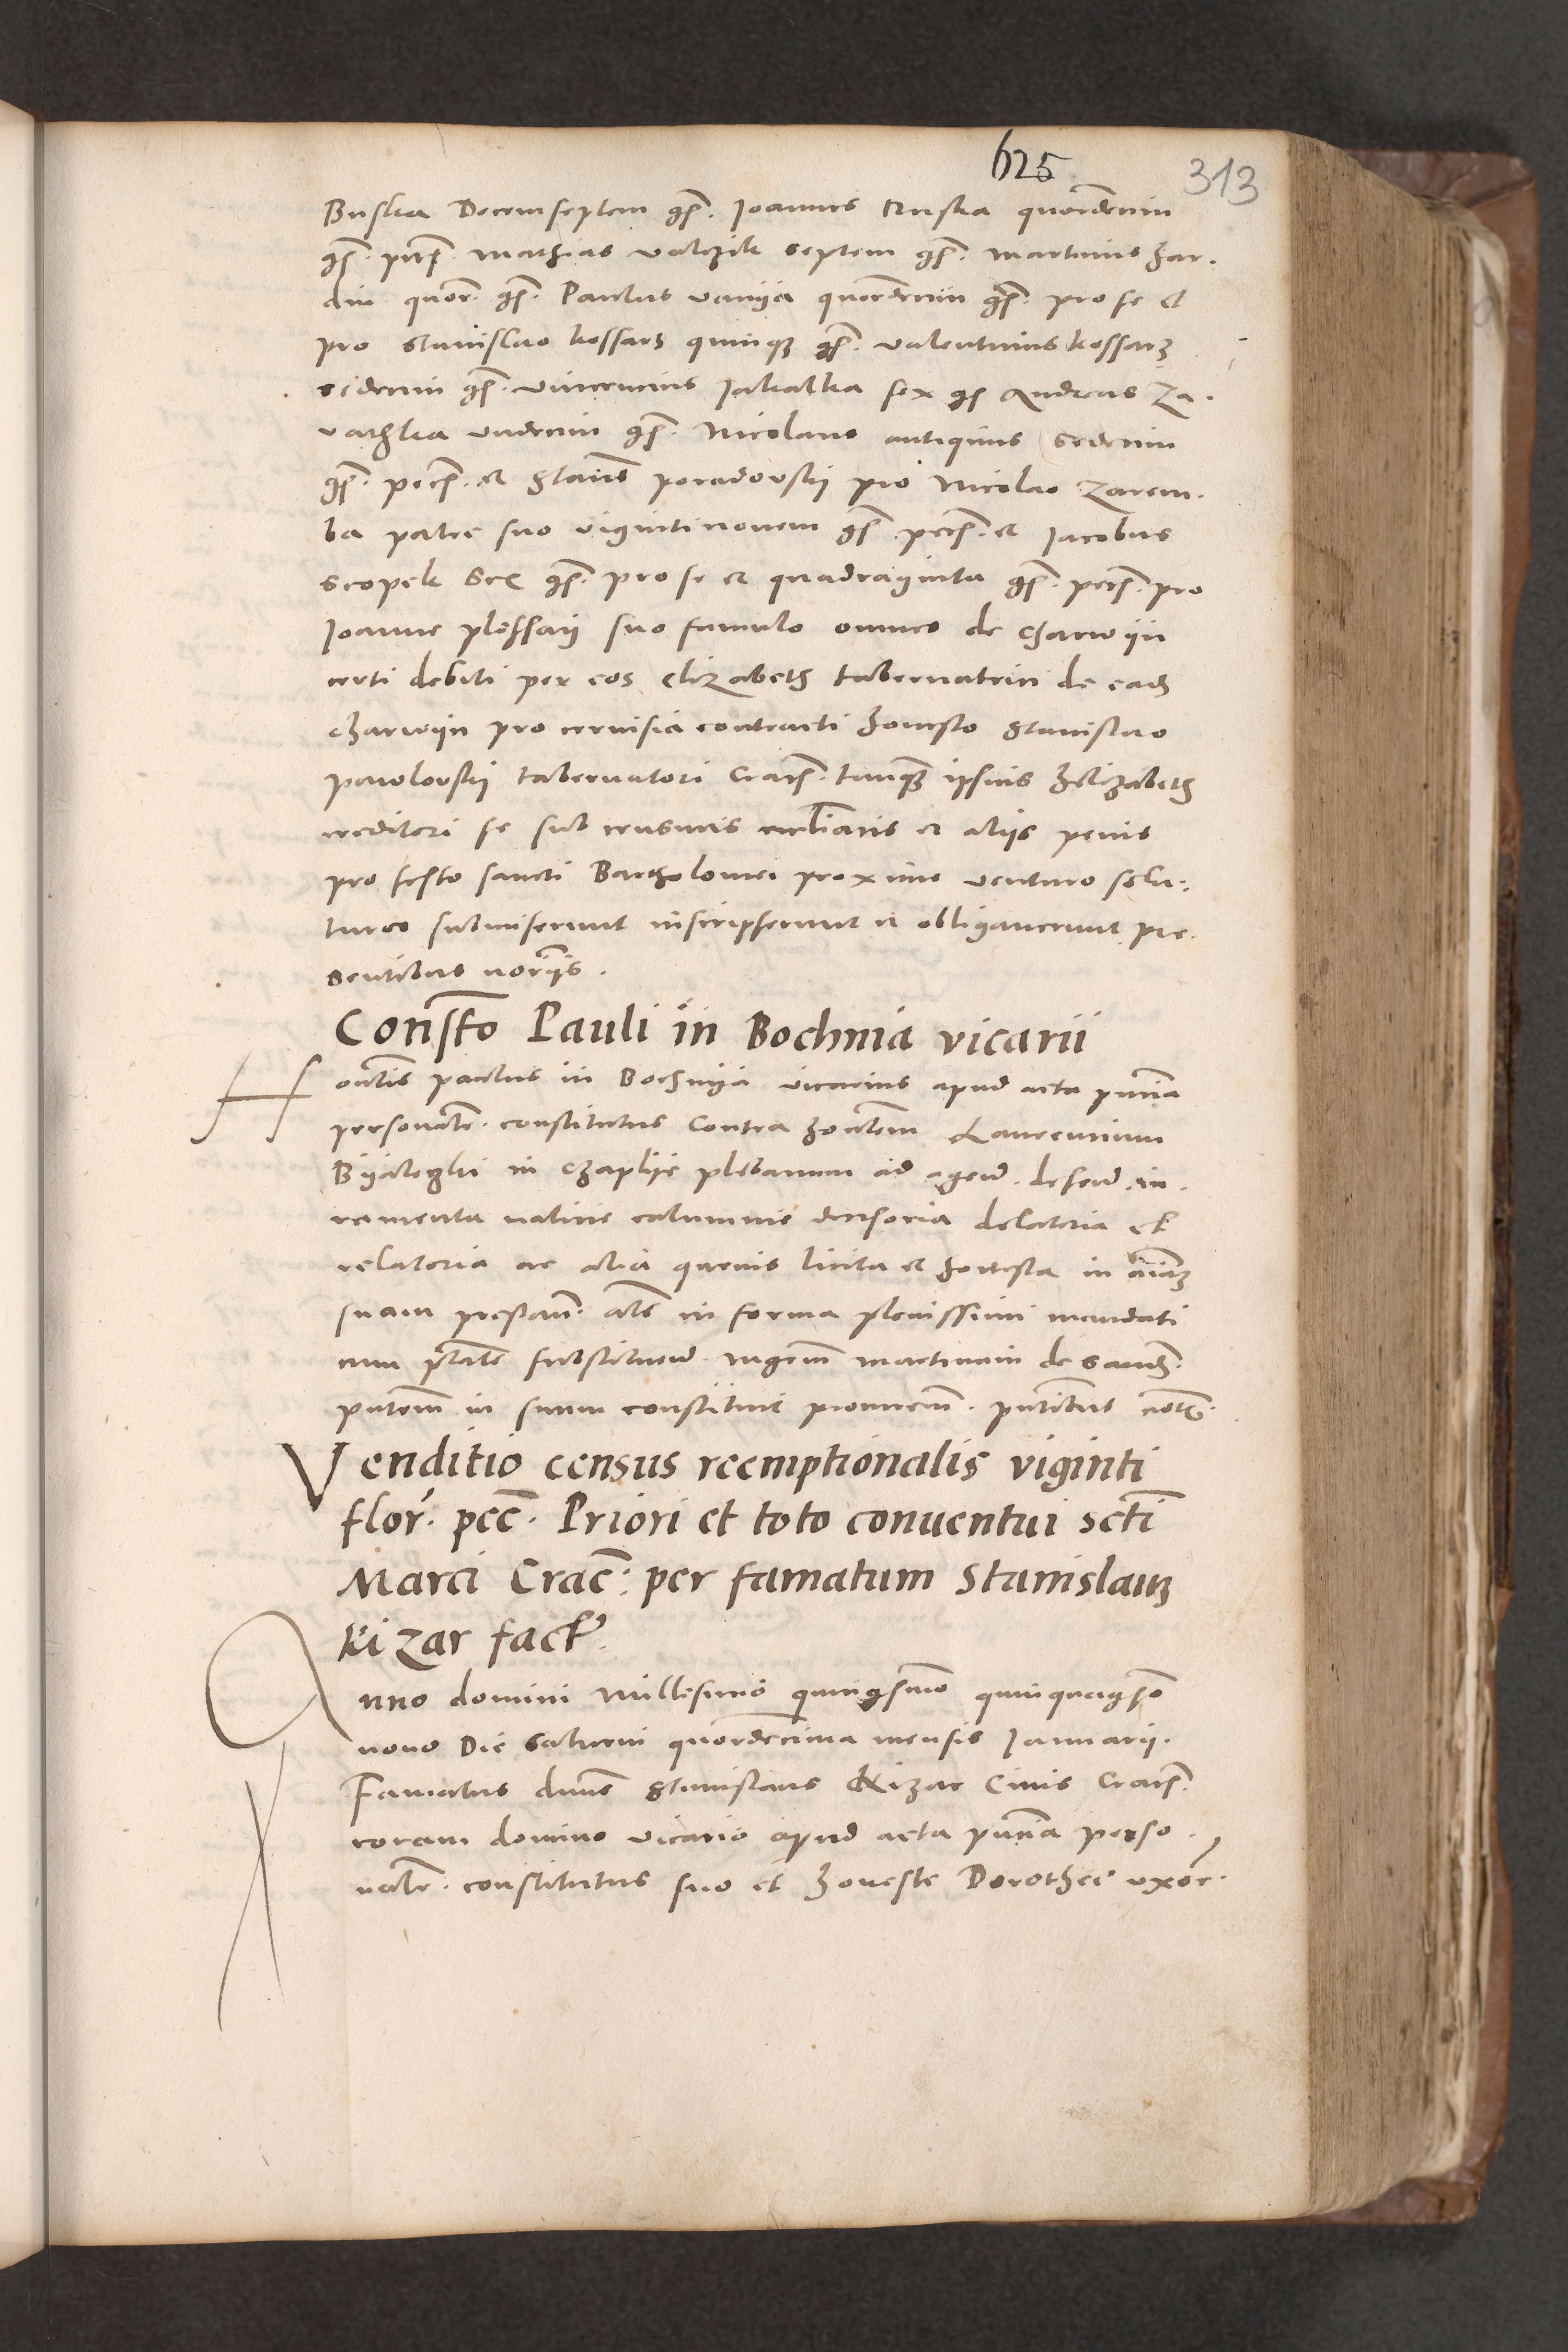 625
313
Buska Decemseptem gs̃. Joannes Kuska quordecim
gs̃. pits̃. Mathias valczik septem gs̃. Martinus har.
din quor̃. gs̃. Paulus vanya quordecim gs̃. pro se et
pro Stanislao kossarz quinq3 gs̃. valentinus kossarz
sedecim gs̃. vincencius Jakalka sex gs̃ Andreas Za.
vathska undecim gs̃. Nicolaus antiquus sedecim
gs̃. pecs̃. et Stanis̃ poradovskij pro Nicolao Zarem.
ba patre suo vigintinovem gs̃ pecs̃. et Jacobus
scopek sex gs̃. pro se et quadraginta gs̃. pecs̃. pro
Joanne plessaij suo famulo omnes de charwijn
certi debiti per eos Elizabeth tabernatrici de ead3
charwijn pro cervisia contracti honesto Stanislao
pawlovskij tabernatori Cracs̃. tanq3 ipsius helizabeth
creditori se sub censuris eccl̃iaris et aliis penis
pro festo sancti Bartholomei proxime venturo solu.
turos submiserunt inscripserunt et obligaverunt pre.
sentibus nor̃iis.
Const̃o Pauli in Bochnia vicarii
Honl̃is paulus in Bochnija vicarius apud acta pñtia
personal̃r. constitutus Contra honl̃em Laurencium
Bijaleski in Czaplije plebanum ad agend. defend. iu.
ramenta maline calumnie decisoria delatoria et
relatoria ac alia quevis licita et honesta in aĩam
suam prestañ. al̃s in forma plenissimi mandati
cum ptãte substituend. mgr̃m Martinum de Sand3.
pñtem in suum constituit procrem̃. pñtibus not̃.
Venditio census reemptionalis viginti
flor̃. pec̃. Priori et toto conventui scti̅
Marci Crac̃. per famatum Stanislau3
Kizar fact̃.
Anno domini Millesimo quingesm̃o quinquages̃o
nono Die Saturni quordecima mensis Januarii.
Famatus dñus Stanislaus Kizar Civis Cracs̃.
coram domino vicario apud acta pñtia perso.
nal̃r. constitutus suo et honeste Dorothee uxor̃.